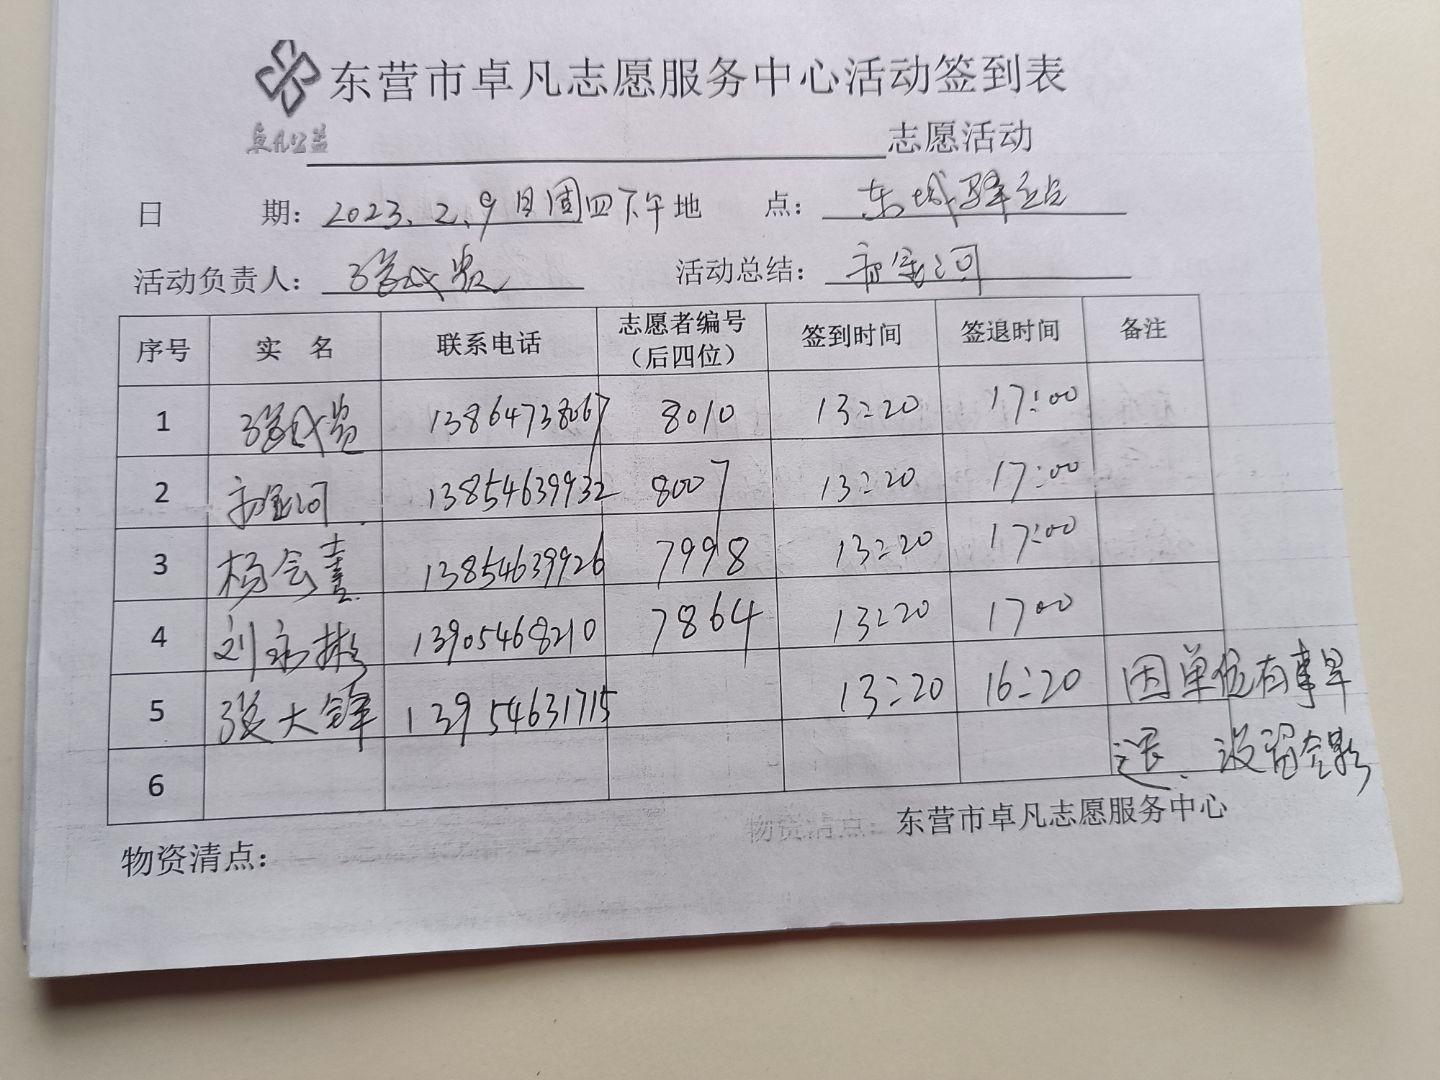 东营市卓凡志愿服务中心活动签到表
卓凡公益
志愿活动
日 期：2023.2.9日周四下午 地 点：东城驿站
活动负责人：张成贵 活动总结：
序号 实 名 联系电话 志愿者编号（后四位） 签到时间 签退时间 备注
1 张成贵 13864738067 8010 13:20 17:00
2 13854639932 8007 13:20 17:00
3 杨会喜 13854639926 7998 13:20 17:00
4 刘永彬 13905468210 7864 13:20 1700
5 张大锋 13954631715 13:20 16:20 因单位有事早
退、没留合影
6
物资清点：
东营市卓凡志愿服务中心
物资清点：